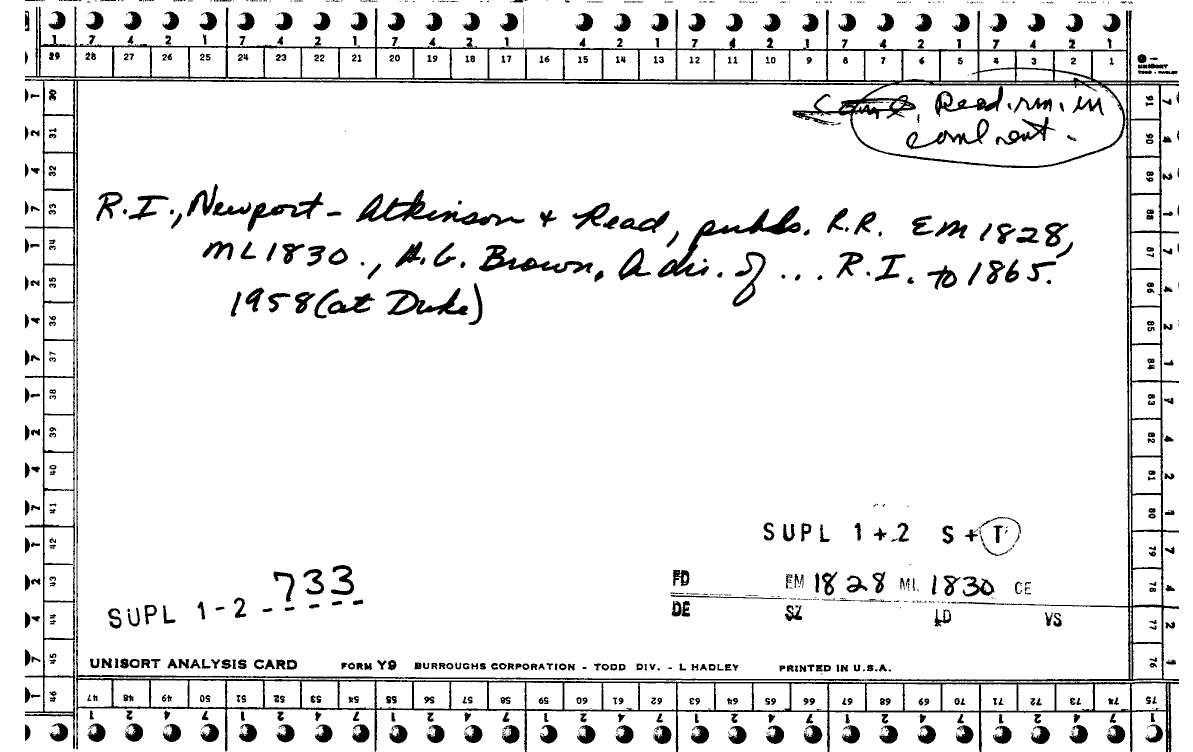 7 4 2 1 7 4 2 1 7 4 2 1 4 2 1 7 4 2 1 7 4 2 1 7 4 2 1
29 28 27 26 25 24 23 22 21 20 19 18 17 16 15 14 13 12 11 10 9 8 7 6 5 4 3 2 1
UNISORT
Read. rm. in
comb. ent.
R.I., Newport - Atkinson & Read, pubbs. R.R. EM 1828,
ML 1830., H.G. Brown, A dir. of ... R.I. to 1865.
1958 (at Duke)
SUPL 1+2 S+T
SUPL 1-2 733
FD EM 1828 ML 1830 CE
DE SZ LD VS
UNISORT ANALYSIS CARD FORM Y9 BURROUGHS CORPORATION - TODD DIV. - L HADLEY PRINTED IN U.S.A.
30 31 32 33 34 35 36 37 38 39 40 41 42 43 44 45 46
91 90 89 88 87 86 85 84 83 82 81 80 79 78 77 76 75
47 48 49 50 51 52 53 54 55 56 57 58 59 60 61 62 63 64 65 66 67 68 69 70 71 72 73 74